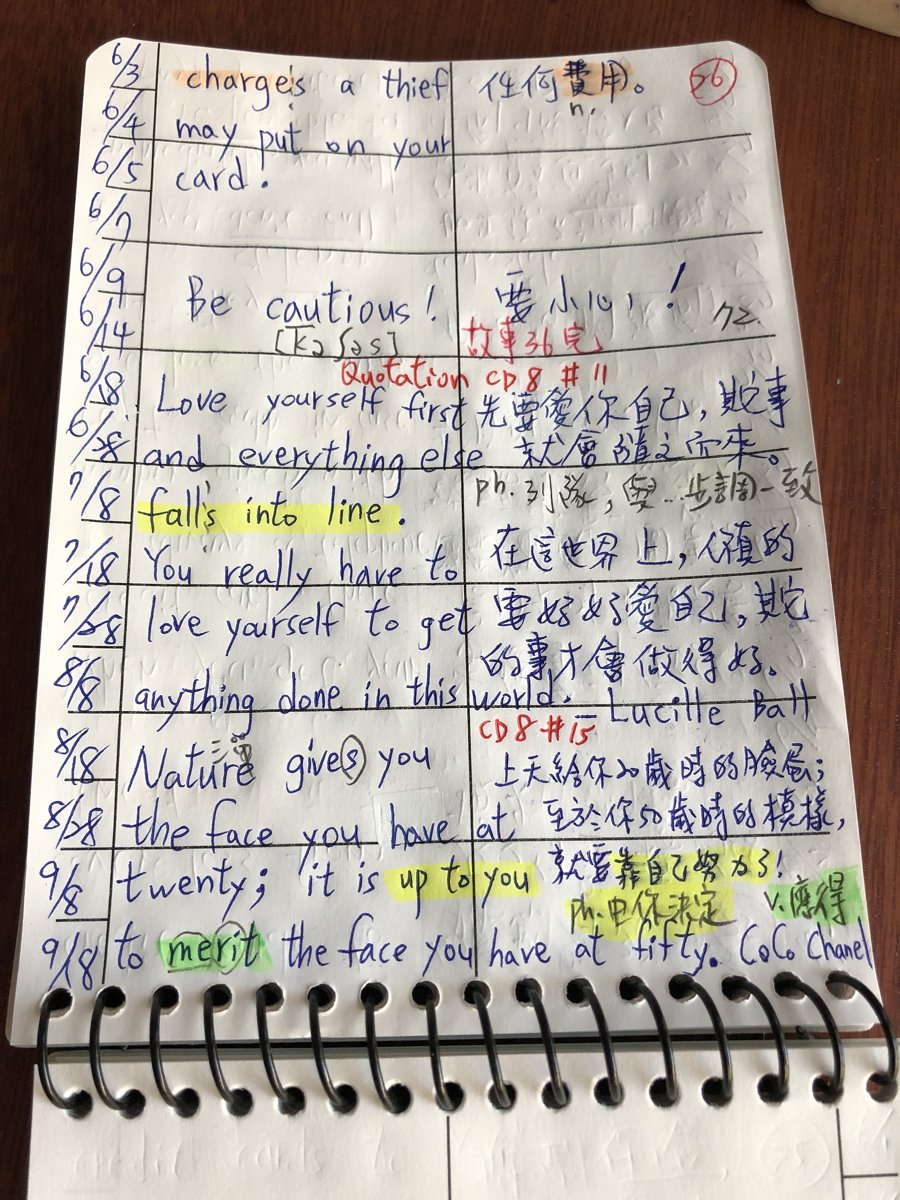 6/3 charges a thief 任何費用。 26
n.
6/4 may put on your
6/5 card!
6/7
6/9 Be cautious! 要小心!
6/14 [kɔʃəs] 故事36完 72.
Quotation CD8 #11
6/18 Love yourself first 先要愛你自己,其它事
6/28 and everything else 就會隨之而來。
7/8 falls into line. ph. 列隊,與…步調一致
7/18 You really have to 在這世界上,你真的
7/28 love yourself to get 要好好愛自己,其它
的事才會做得好。
8/8 anything done in this world. - Lucille Ball
CD8 #15
8/18 Nature gives you 上天給你20歲時的臉蛋;
8/28 the face you have at 至於你50歲時的模樣,
9/8 twenty; it is up to you 就要靠自己努力了!
ph. 由你決定 v. 應得
9/18 to merit the face you have at fifty. CoCo Chanel